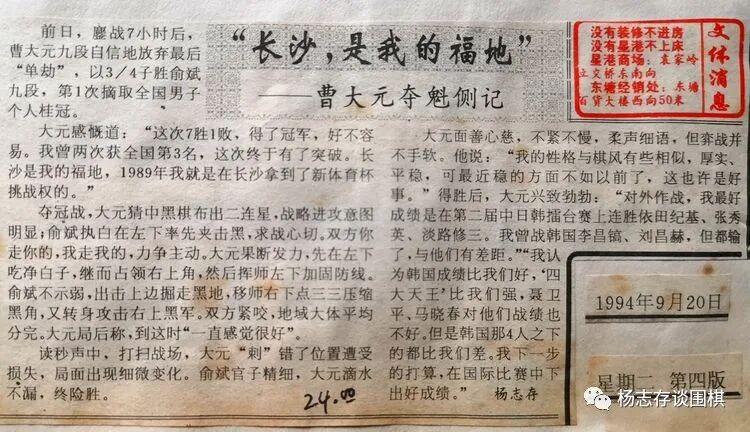 “长沙，是我的福地”
——曹大元夺魁侧记
前日，鏖战7小时后，
曹大元九段自信地放弃最后
“单劫”，以3/4子胜俞斌
九段，第1次摘取全国男子
个人桂冠。
大元感慨道：“这次7胜1败，得了冠军，好不容
易。我曾两次获全国第3名，这次终于有了突破。长
沙是我的福地，1989年我就是在长沙拿到了新体育杯
挑战权的。”
夺冠战，大元猜中黑棋布出二连星，战略进攻意图
明显；俞斌执白在左下率先夹击黑，求战心切。双方你
走你的，我走我的，力争主动。大元果断发力，先在左下
吃净白子，继而占领右上角，然后挥师左下加固防线。
俞斌不示弱，出击上边掘走黑地，移师右下点三三压缩
黑角，又转身攻击右上黑军。双方紧咬，地域大体平均
分完。大元局后称，到这时“一直感觉很好”。
读秒声中，打扫战场，大元“刺”错了位置遭受
损失，局面出现细微变化。俞斌官子精细，大元滴水
不漏，终险胜。
24.00
大元面善心慈，不紧不慢，柔声细语，但弈战并
不手软。他说：“我的性格与棋风有些相似，厚实、
平稳，可最近稳的方面不如以前了，这也许是好
事。”得胜后，大元兴致勃勃：“对外作战，我最好
成绩是在第二届中日韩擂台赛上连胜依田纪基、张秀
英、淡路修三。我曾战韩国李昌镐、刘昌赫，但都输
了，与他们有差距。”“我认
为韩国成绩比我们好，‘四
大天王’比我们强，聂卫
平、马晓春对他们战绩也
不好。但是韩国那4人之下
的都比我们差。我下一步
的打算，在国际比赛中下
出好成绩。” 杨志存
没有装修不进房
没有星港不上床
星港商场：袁家岭
立交桥东南向
东塘经销处：东塘
百货大楼西向50米
文体消息
1994年9月20日
星期二 第四版
杨志存谈围棋